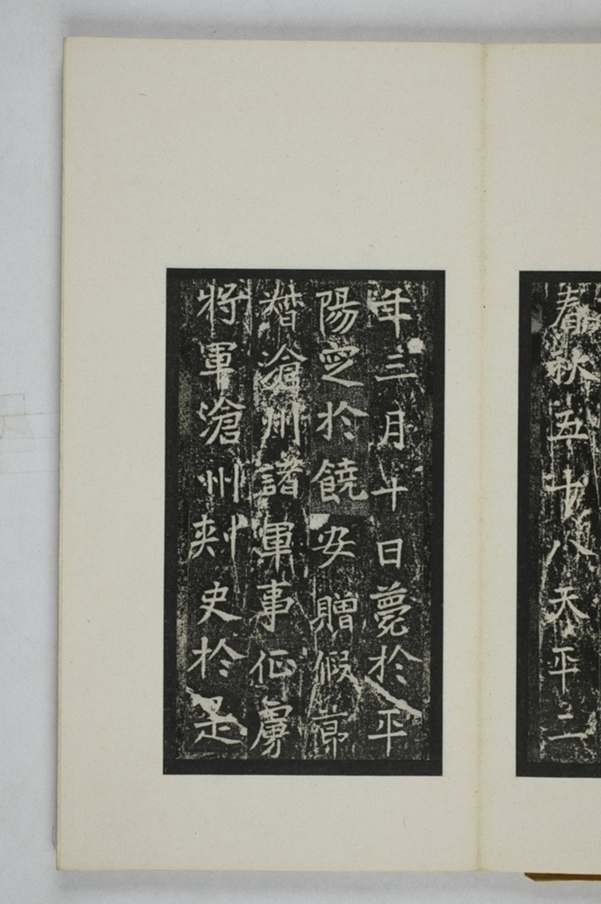 春秋五十八天平二
年三月十日薨於平
陽窆於饒安贈假節
督滄州諸軍事征虜
将軍滄州刺史於是